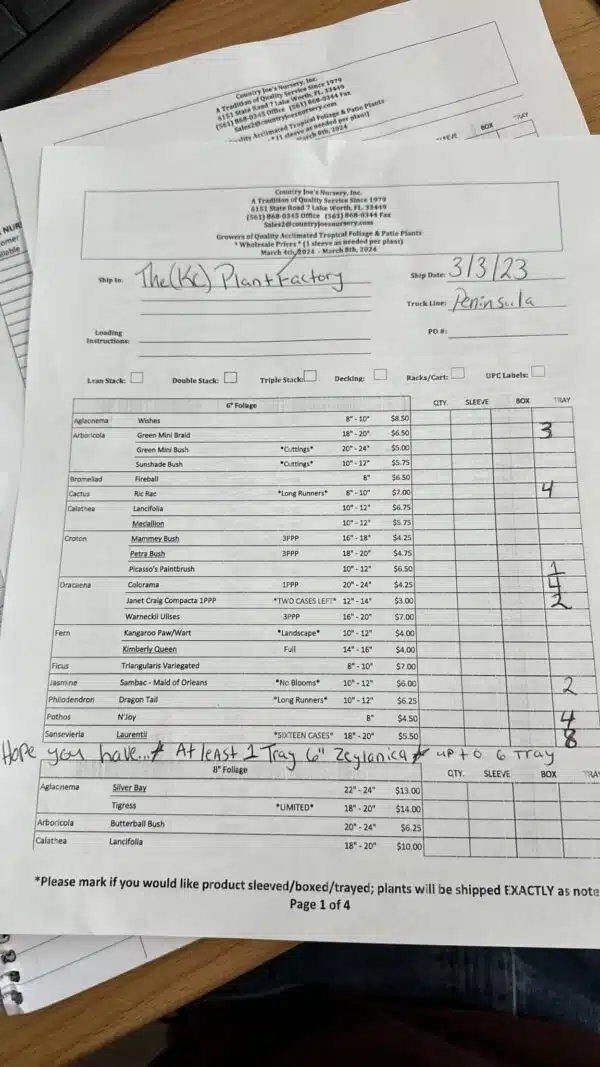 Country Joe's Nursery, Inc.
A Tradition of Quality Service Since 1979
6151 State Road 7 Lake Worth, FL. 33449
(561) 868-0345 Office (561) 868-0344 Fax
Sales2@countryjoesnursery.com
Acclimated Tropical Foliage & Patio Plants
(1 sleeve as needed per plant)
March 8th, 2024
BOX TRAY
Country Joe's Nursery, Inc.
A Tradition of Quality Service Since 1979
6151 State Road 7 Lake Worth, FL. 33449
(561) 868-0345 Office (561) 868-0344 Fax
Sales2@countryjoesnursery.com
Growers of Quality Acclimated Tropical Foliage & Patio Plants
* Wholesale Prices * (1 sleeve as needed per plant)
March 4th, 2024 - March 8th, 2024
Ship to: The (KC) Plant Factory Ship Date: 3/3/23
Truck Line: Peninsula
Loading Instructions: PO #:
Lean Stack: Double Stack: Triple Stack: Decking: Racks/Cart: UPC Labels:
6" Foliage QTY. SLEEVE BOX TRAY
Aglaonema Wishes 8" - 10" $8.50
Arboricola Green Mini Braid 18" - 20" $6.50 3
Green Mini Bush *Cuttings* 20" - 24" $5.00
Sunshade Bush *Cuttings* 10" - 12" $5.75
Bromeliad Fireball 8" $6.50
Cactus Ric Rac *Long Runners* 8" - 10" $7.00 4
Calathea Lancifolia 10" - 12" $6.75
Medallion 10" - 12" $5.75
Croton Mammey Bush 3PPP 16" - 18" $4.25
Petra Bush 3PPP 18" - 20" $4.75
Picasso's Paintbrush 10" - 12" $6.50 1
Dracaena Colorama 1PPP 20" - 24" $4.25 4
Janet Craig Compacta 1PPP *TWO CASES LEFT* 12" - 14" $3.00 2
Warneckii Ulises 3PPP 16" - 20" $7.00
Fern Kangaroo Paw/Wart *Landscape* 10" - 12" $4.00
Kimberly Queen Full 14" - 16" $4.00
Ficus Triangularis Variegated 8" - 10" $7.00
Jasmine Sambac - Maid of Orleans *No Blooms* 10" - 12" $6.00 2
Philodendron Dragon Tail *Long Runners* 10" - 12" $6.25
Pothos N'Joy 8" $4.50 4
Sansevieria Laurentii *SIXTEEN CASES* 18" - 20" $5.50 8
Hope you have...* At least 1 Tray 6" Zeylanica * up to 6 Tray
8" Foliage QTY. SLEEVE BOX TRA
Aglaonema Silver Bay 22" - 24" $13.00
Tigress *LIMITED* 18" - 20" $14.00
Arboricola Butterball Bush 20" - 24" $6.25
Calathea Lancifolia 18" - 20" $10.00
*Please mark if you would like product sleeved/boxed/trayed; plants will be shipped EXACTLY as note
Page 1 of 4